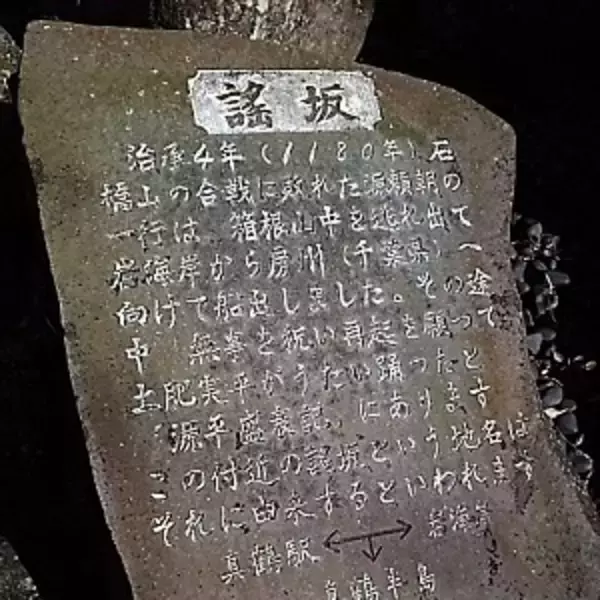 謡坂
治承4年(1180年)、石
橋山の合戦に敗れた源頼朝の
一行は、箱根山中を逃れ出て
岩海岸から房州(千葉県)へ
向けて船出しました。その途
中、無事を祝い再起を願って
土肥実平がうたい踊ったと
源平盛衰記にあります
この付近の謡坂という地名は
それに由来するといわれます
真鶴駅
岩海岸
真鶴半島